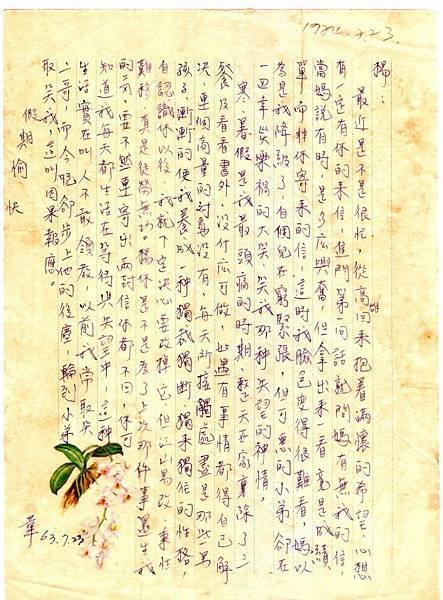 1974.7.23.
楊：
最近是不是很忙，從高雄回來抱著滿懷的希望，心想
有一定有你的來信，進門第一句話就問媽有無我的信，
當媽說有時，是多麼興奮，但拿出來一看竟是成績
單而非你寄來的信，這時我臉色變得很難看，媽以
為是我降級了，自個兒在窮緊張，但可惡的小弟卻在
一旁幸災樂禍的大笑，笑我那種失望的神情。
寒、暑假是我最頭痛的時期，整天在家裏除了三
餐及看看書外，沒什麼可做，遇有事情都得自己解
決，連個商量的對象沒有，每天所接觸處盡是那些
孩子，漸漸的使我養成一種獨裁獨斷獨來獨往的性格，
自認識你以後，我就下定決心要改掉它，但江山易改，本性
難移，真是徒勞無功。楊你是不是為了上次那件事還生我
的氣，要不然連寄出兩封信你都不回，你可
知道我每天都生活在等待與失望中，這種
生活實在叫人不敢領教，以前我常取笑
二哥，而今吧卻步上他的後塵，輪到小弟
取笑我，這叫因果報應。
假期愉快
華 63.7.23